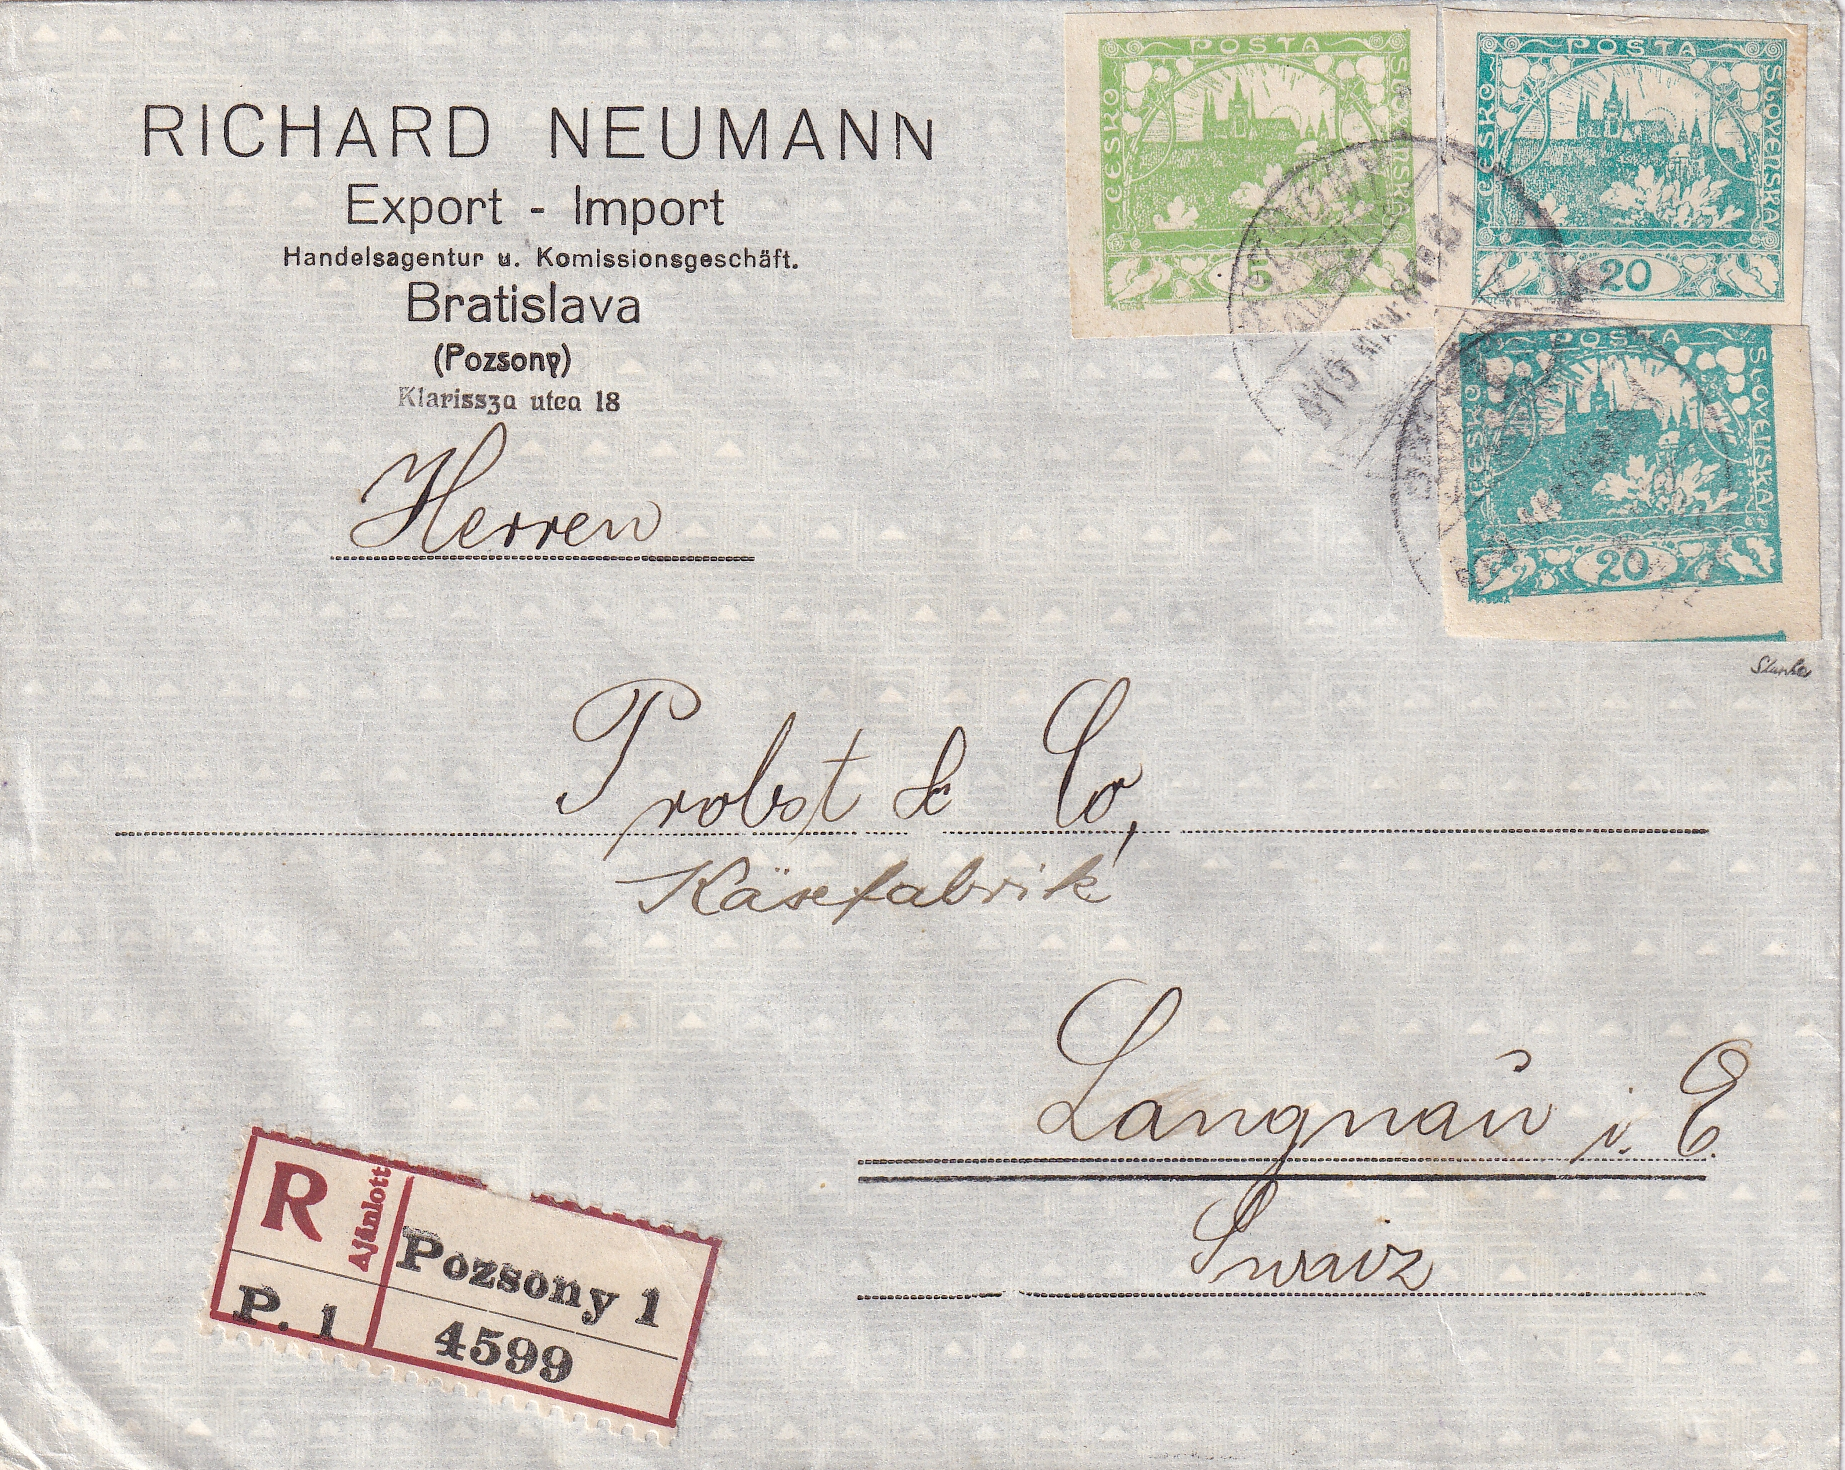 RICHARD NEUMANN
Export - Import
Handelsagentur u. Komissionsgeschäft.
Bratislava
(Pozsony)
Klarissza utca 18
Herren
Probst & Co,
Käsefabrik
Langnau i. E.
Swaiz
POŠTA
ČESKO
SLOVENSKÁ
5
POŠTA
ČESKO
SLOVENSKÁ
20
POŠTA
ČESKO
SLOVENSKÁ
20
R
Ajánlott
P. 1
Pozsony 1
4599